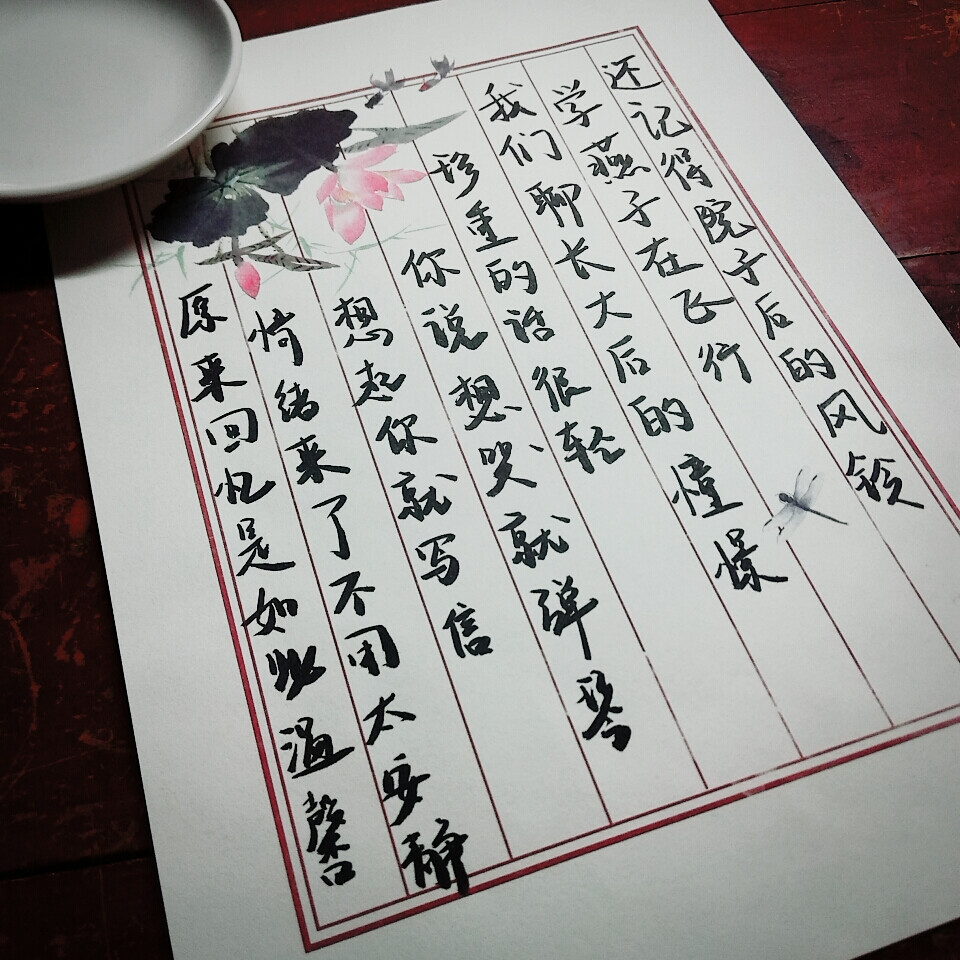 还记得院子后的风铃
学燕子在飞行
我们聊长大后的憧憬
珍重的话很轻
你说想哭就弹琴
想起你就写信
情绪来了不用太安静
原来回忆是如此温馨